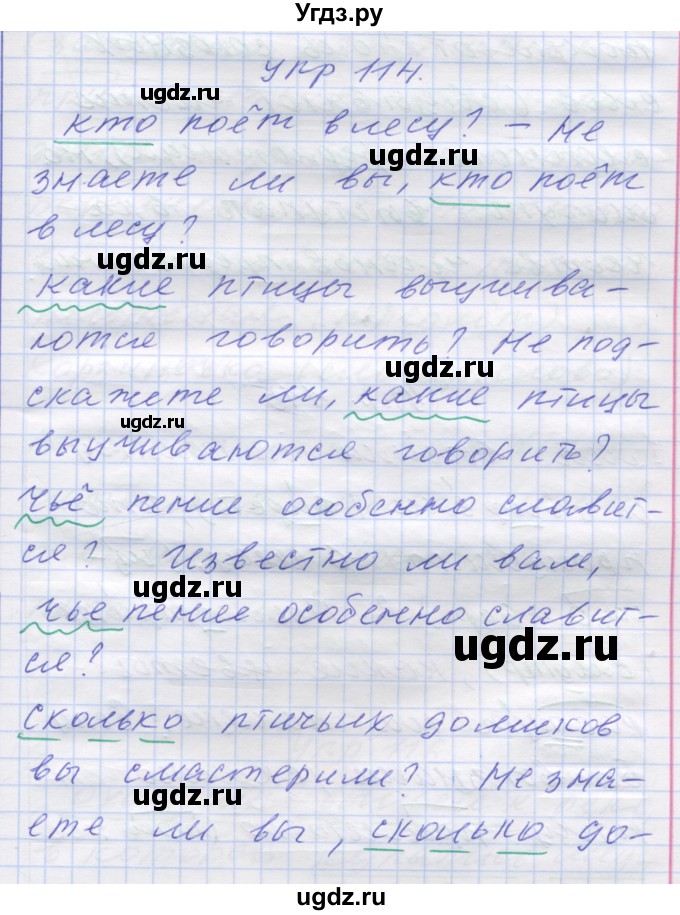 Угдз.ру
упр 114.
ugdz.ru
кто поёт в лесу? – Не
ugdz.ru
знаете ли вы, кто поёт
в лесу?
ugdz.ru
какие птицы выучива-
ются говорить? Не под-
ugdz.ru
скажете ли, какие птицы
ugdz.ru
выучиваются говорить?
чьё пение особенно славит-
ся? Известно ли вам,
ugdz.ru
чье пение особенно славит-
ugdz.ru
ся?
сколько птичьих домиков
вы смастерили? Не зна-
ugdz.ru
ете ли вы, сколько до-
ugdz.ru